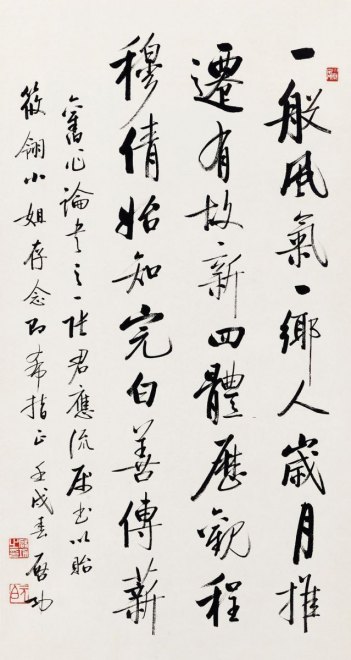 一般風氣一鄉人歲月推
遷有故新四體歷觀程
穆倩始知完白善傳薪
舊作論書之一張君應流屬書以貽
筱翎小姐存念即希指正壬戌春啟功